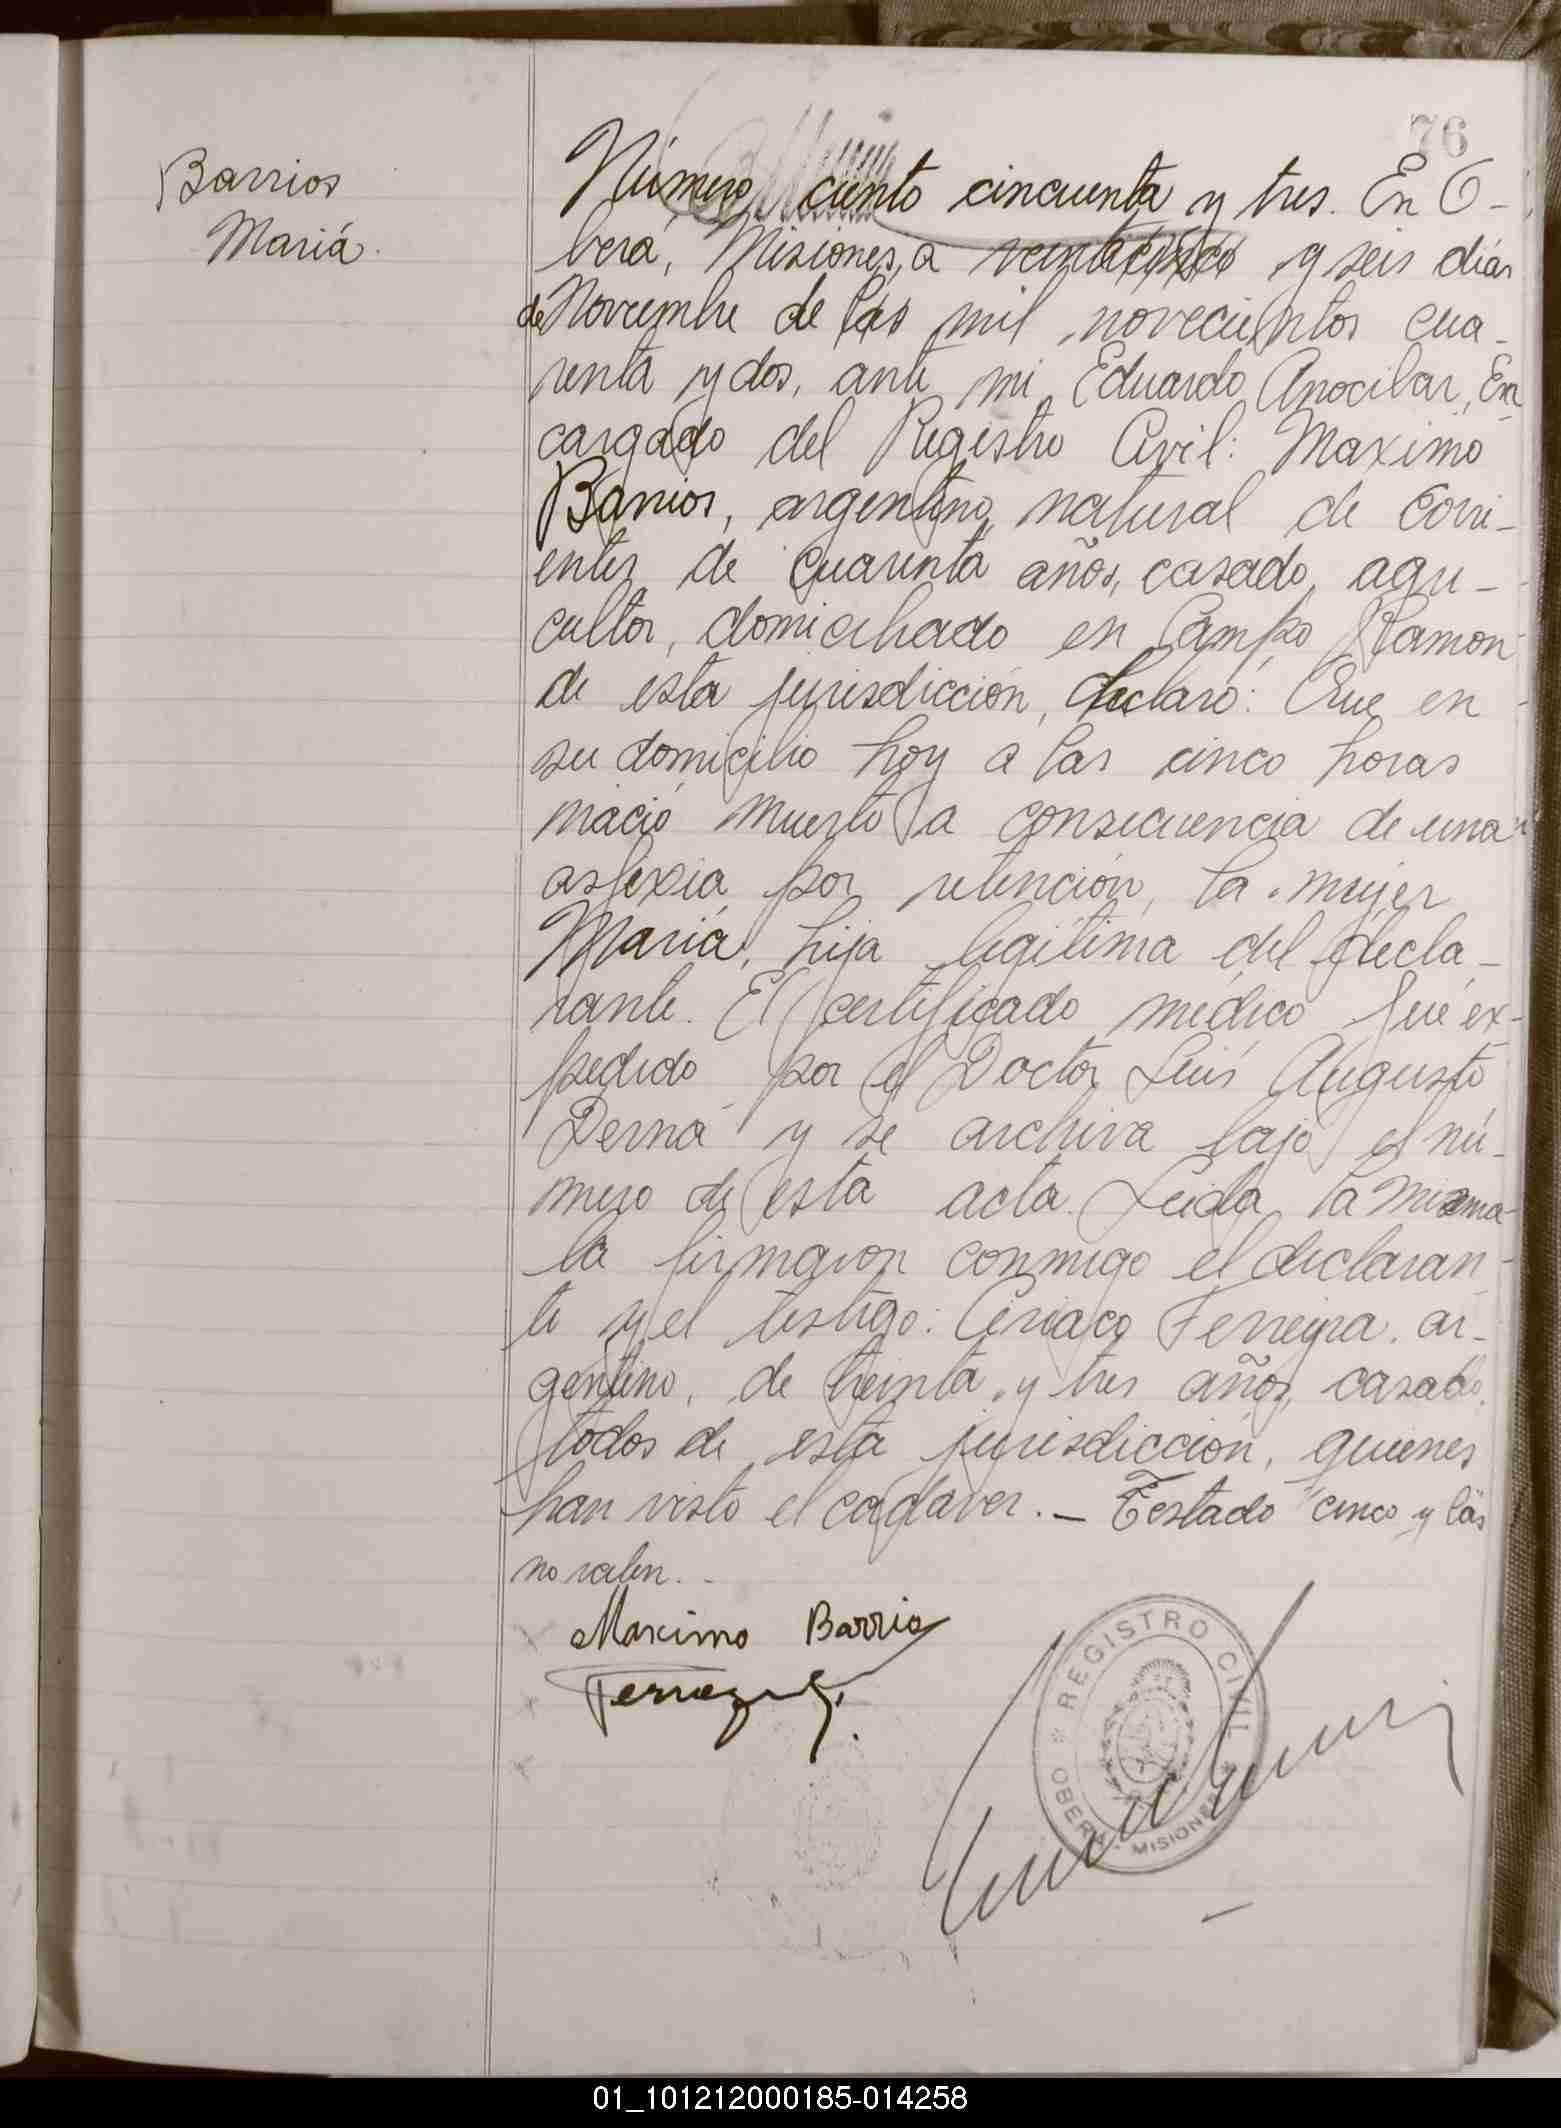 76
Barrios
Mariá.
Número ciento cincuenta y tres. En O-
berá, Misiones, a veinticinco y seis días
de Noviembre de las mil novecientos cua-
renta y dos, ante mi Eduardo Anocibar, En-
cargado del Registro Civil: Maximo
Barrios, argentino, natural de Corri-
entes de cuarenta años, casado, agri-
cultor, domiciliado en Campo Ramon
de esta jurisdicción, declaró: Que en
su domicilio hoy a las cinco horas
nació muerto a consecuencia de una
asfixia por retención, la mujer
Mariá, hija legítima del decla-
rante. El certificado médico fué ex-
pedido por el Doctor Luis Augusto
Derna y se archiva bajo el nú-
mero de esta acta. Leida la misma
la firmaron conmigo el declaran-
te y el testigo: Ciriaco Ferreyra, ar-
gentino, de treinta y tres años, casado,
todos de esta jurisdicción, quienes
han visto el cadaver. - Testado "cinco y las
no valen. -
Maximo Barrio
REGISTRO CIVIL
OBERA - MISIONES
01_101212000185-014258